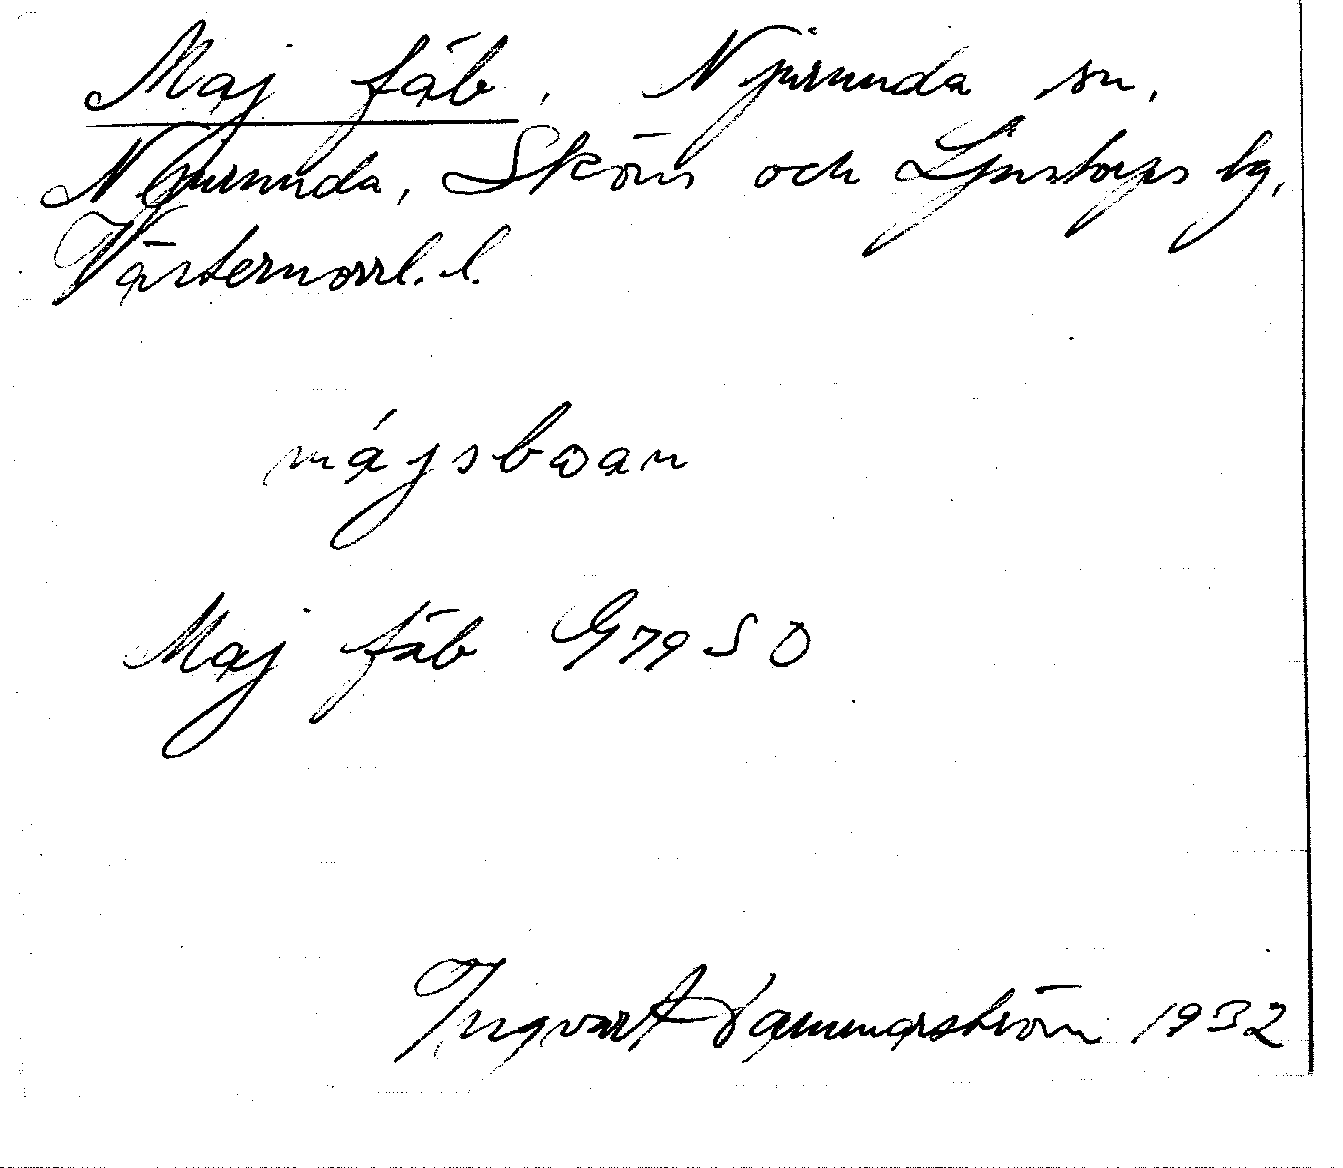 Maj fäb, Njurunda sn,
Njurunda, Sköns och Ljustorps tg,
Västernorrl. l.
májsbωan
Maj fäb G79SO
Ingvar Hammarström 1932